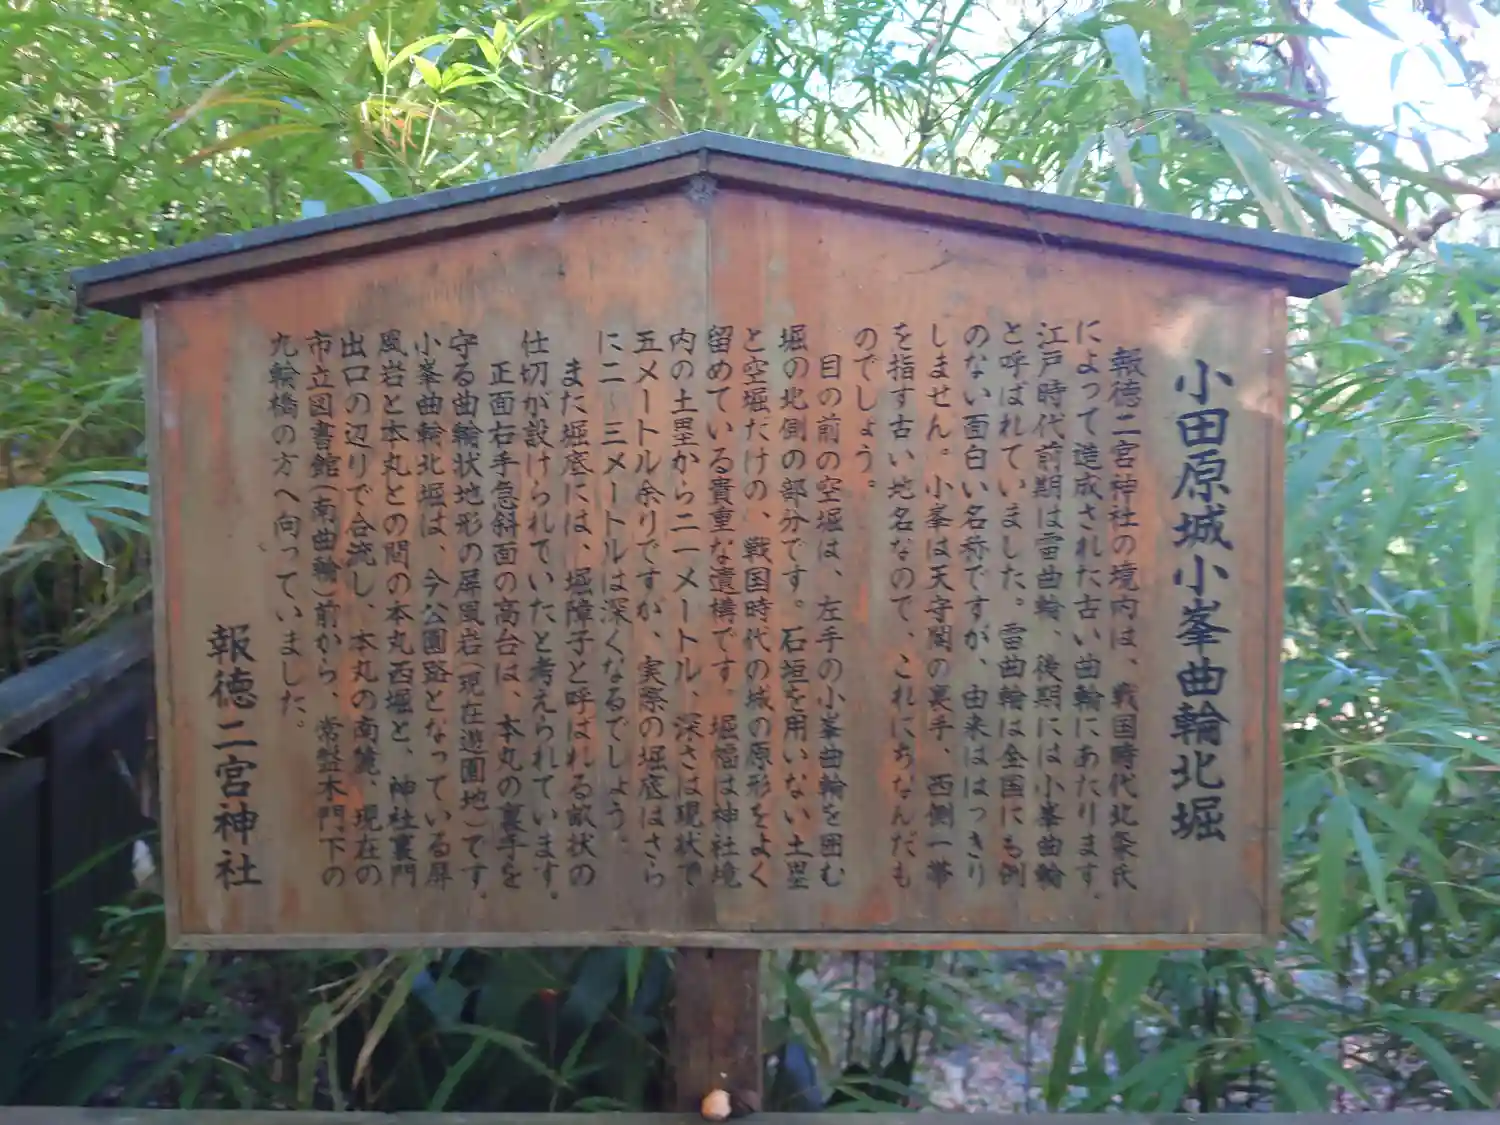 小田原城小峯曲輪北堀
報徳二宮神社の境内は、戦国時代北条氏
によって造成された古い曲輪にあたります。
江戸時代前期は雷曲輪、後期には小峯曲輪
と呼ばれていました。雷曲輪は全国にも例
のない面白い名称ですが、由来ははっきり
しません。小峯は天守閣の裏手、西側一帯
を指す古い地名なので、これにちなんだも
のでしょう。
目の前の空堀は、左手の小峯曲輪を囲む
堀の北側の部分です。石垣を用いない土塁
と空堀だけの、戦国時代の城の原形をよく
留めている貴重な遺構です。堀幅は神社境
内の土塁から二一メートル、深さは現状で
五メートル余りですが、実際の堀底はさら
に二～三メートルは深くなるでしょう。
また堀底には、堀障子と呼ばれる畝状の
仕切が設けられていたと考えられています。
正面右手急斜面の高台は、本丸の裏手を
守る曲輪状地形の屏風岩(現在遊園地)です。
小峯曲輪北堀は、今公園路となっている屏
風岩と本丸との間の本丸西堀と、神社裏門
出口の辺りで合流し、本丸の南麓、現在の
市立図書館(南曲輪)前から、常盤木門下の
九輪橋の方へ向っていました。
報徳二宮神社